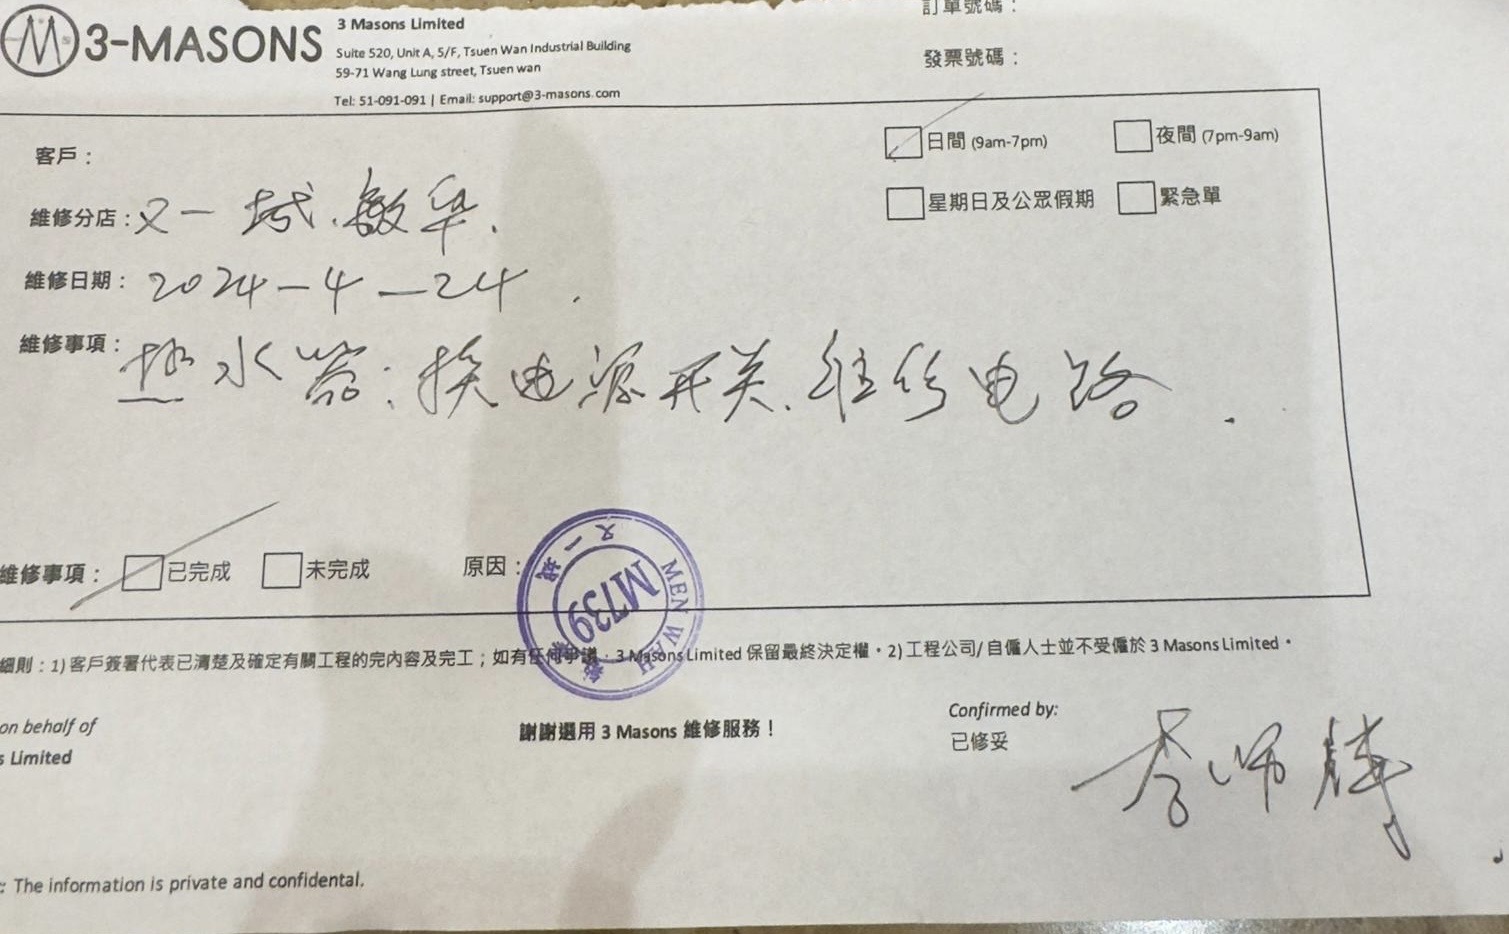 訂單號碼：
3-MASONS
3 Masons Limited
Suite 520, Unit A, 5/F, Tsuen Wan Industrial Building
59-71 Wang Lung street, Tsuen wan
Tel: 51-091-091 | Email: support@3-masons.com
發票號碼：
客戶：
日間 (9am-7pm)
夜間 (7pm-9am)
維修分店：又一城.敏华.
星期日及公眾假期
緊急單
維修日期：2024-4-24.
維修事項：热水器:换电源开关.维修电路.
維修事項：
已完成
未完成
原因：
又一城
MEN WAH
M739
細則：1) 客戶簽署代表已清楚及確定有關工程的完內容及完工；如有任何爭議，3 Masons Limited 保留最終決定權。2) 工程公司/ 自僱人士並不受僱於 3 Masons Limited。
on behalf of
s Limited
謝謝選用 3 Masons 維修服務！
Confirmed by:
已修妥
李
: The information is private and confidental.